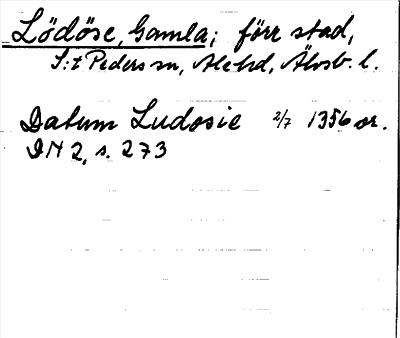 Lödöse, Gamla; förr stad,
S:t Peders sn, Ale hd, Älvsb. l.
Datum Ludosie 2/7 1356 or.
DN 2, s. 273